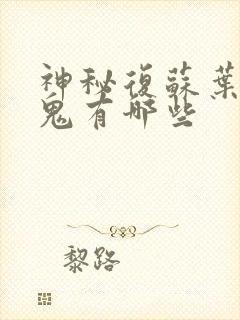 神秘復蘇葉
鬼有哪些
黎路